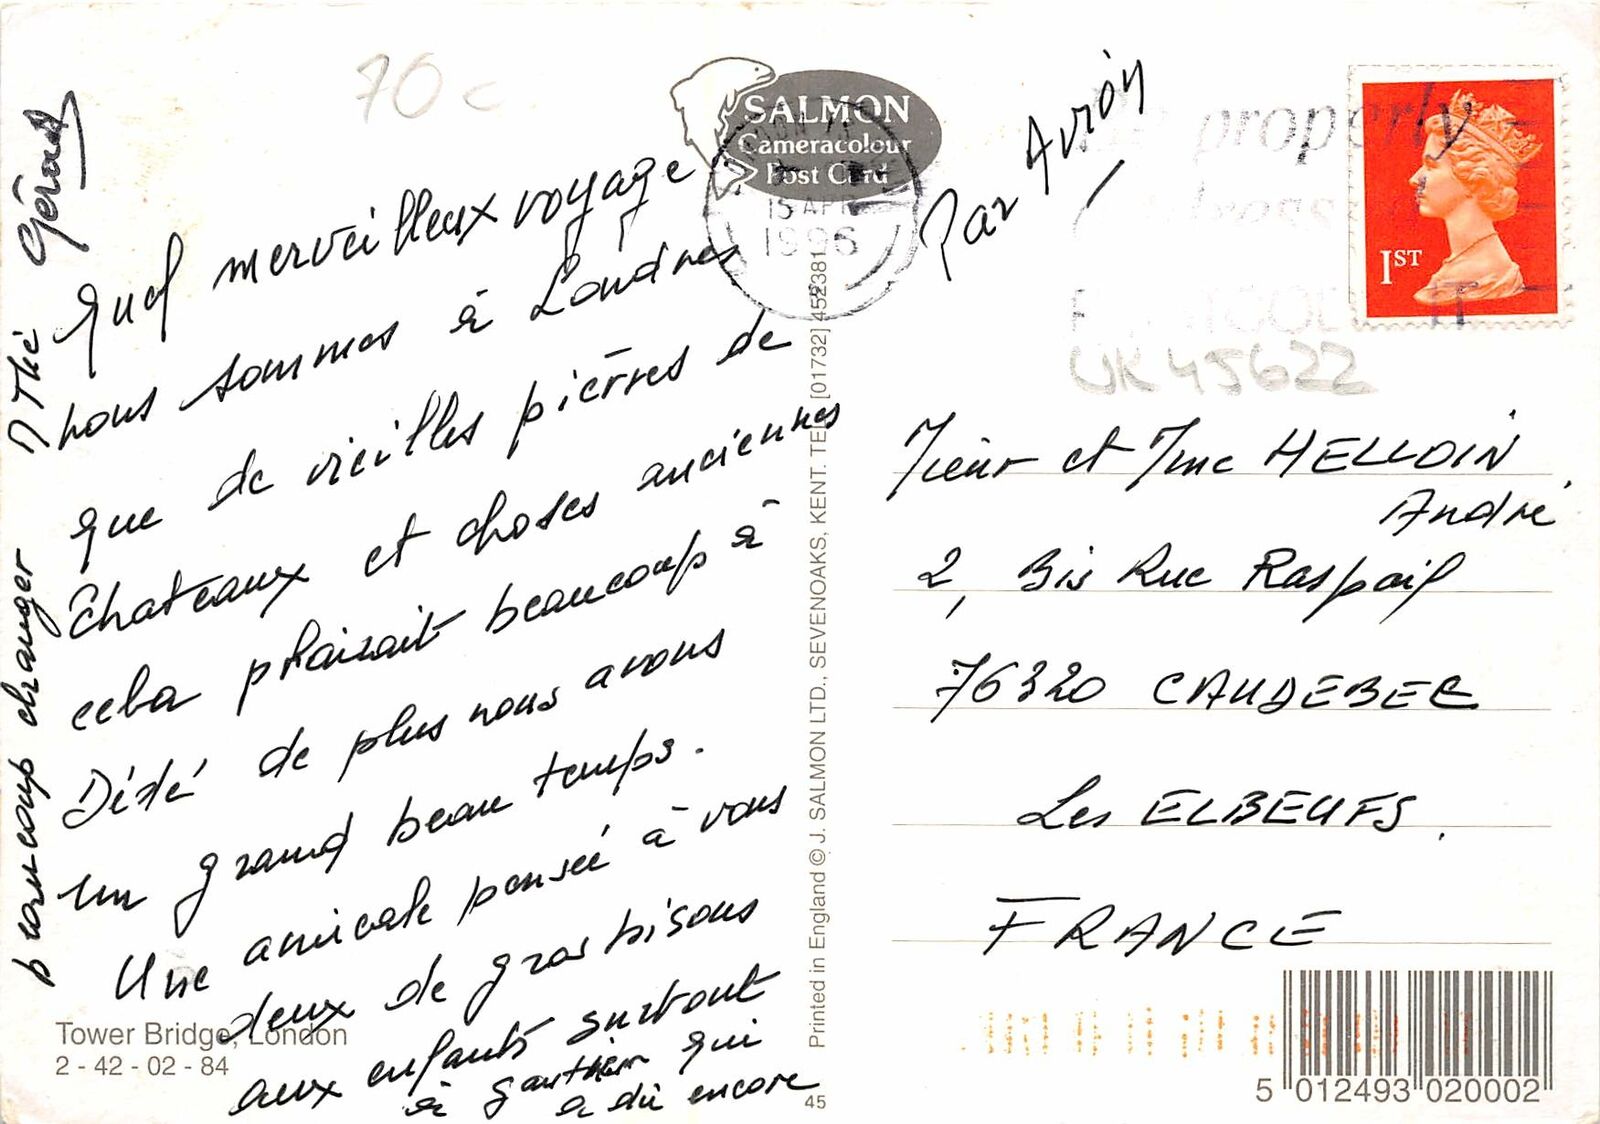 70c
Quel merveilleux voyage
nous sommes à Londres
que de vieilles pierres de
Chateaux et choses anciennes
cela plairait beaucoup à
Dédé de plus nous avons
un grand beau temps.
Une amicale pensée à vous
deux de gros bisous
aux enfants surtout
à Gauthier qui
a dû encore
beaucoup changer
Gérard
SALMON
Cameracolour
Post Card
15 APR
1996
Par Avion
properly
1ST
UK 45622
et Mme HELLOIN
André
2, Bis Rue Raspail
76320 CAUDEBEC
Les ELBEUFS.
FRANCE
Printed in England © J. SALMON LTD., SEVENOAKS, KENT. TEL [01732] 452381
Tower Bridge, London
2 - 42 - 02 - 84
45
5 012493 020002